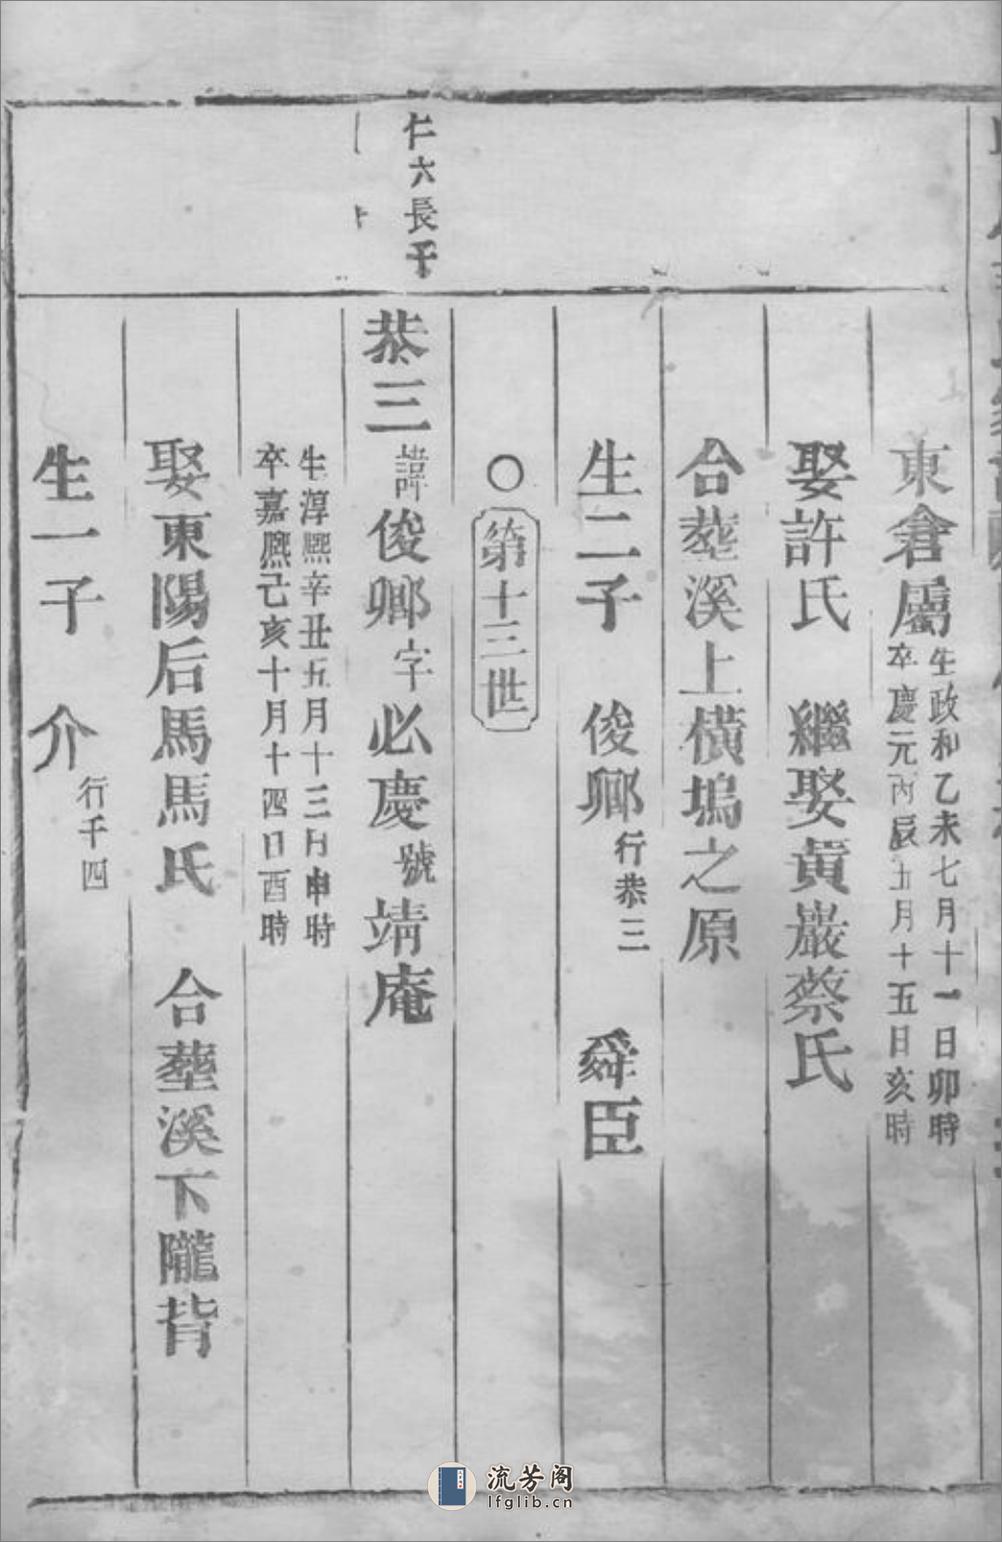 東倉屬生政和乙未七月十一日卯時
卒慶元丙辰五月十五日亥時
娶許氏 繼娶黃巖蔡氏
合塟溪上橫塢之原
生二子 俊卿行恭三 舜臣
〇第十三世
仁六長子
恭三諱俊卿字必慶號靖庵
生淳熙辛丑五月十三日申時
卒嘉熙己亥十月十四日酉時
娶東陽后馬馬氏 合塟溪下隴背
生一子 介行千四
流芳阁
lfglib.cn